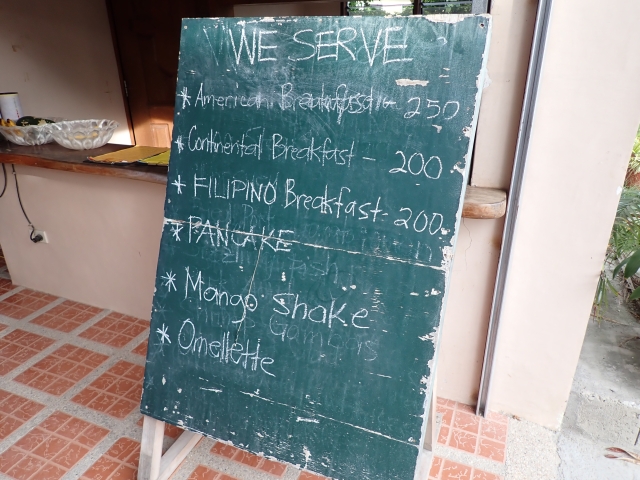 WE SERVE
* American Breakfast - 250
* Continental Breakfast - 200
* FILIPINO Breakfast - 200
* PANCAKE
* Mango Shake
* Omellette